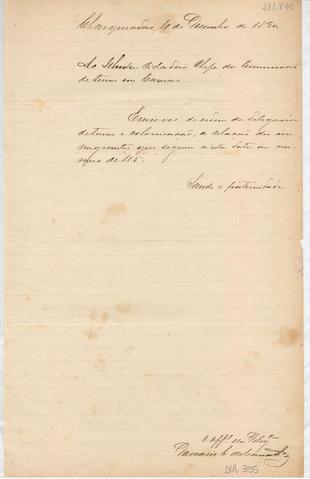 Charqueadas 10 de Dezembro de 1890
Ao Illustre Cidadão Chefe da Commissão
de terras em Caxias.
Envio-vos de ordem da Delegacia
de terras e colonisação, a relação dos im
migrantes que seguem nesta data em nu
mero de 115.
Saude e fraternidade
NA 395